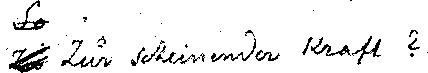 So
Zur scheinender Kraft ?